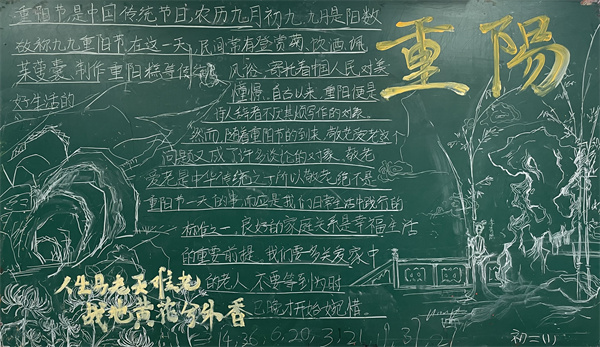 重陽
重阳节,是中国传统节日,农历九月初九,九月是阳数
故称九九重阳节,在这一天,民间常有登赏菊、饮酒、佩
茱萸囊、制作重阳糕等传统 风俗,寄托着中国人民对美
好生活的 憧憬。自古以来,重阳便是
诗人给者不厌其烦写作的对象。
然而,随着重阳节的到来,敬老爱老这个
问题又成了许多谈论的对象,敬老
爱老是中华传统之一所以敬老绝不是
重阳节一天的事,而应是我们日常生活中践行的
标准之一,良好的家庭关系是幸福生活
的重要前提,我们要多关爱家中
的老人,不要等到为时
已晚才开始惋惜
人生易老天难老
战地黄花分外香
14,36,6,20,3,21,9,37,27
初二(1)